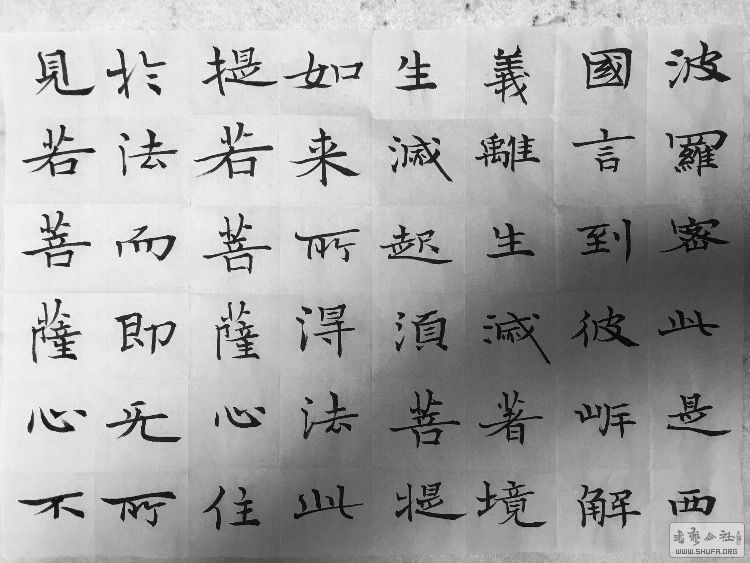 波羅密此是西
國言到彼岸解
義離生滅著境
生滅起湏菩提
如来所得法此
提若菩薩心住
於法而即无所
見若菩薩心不
書藝公社
WWW.SHUFA.ORG